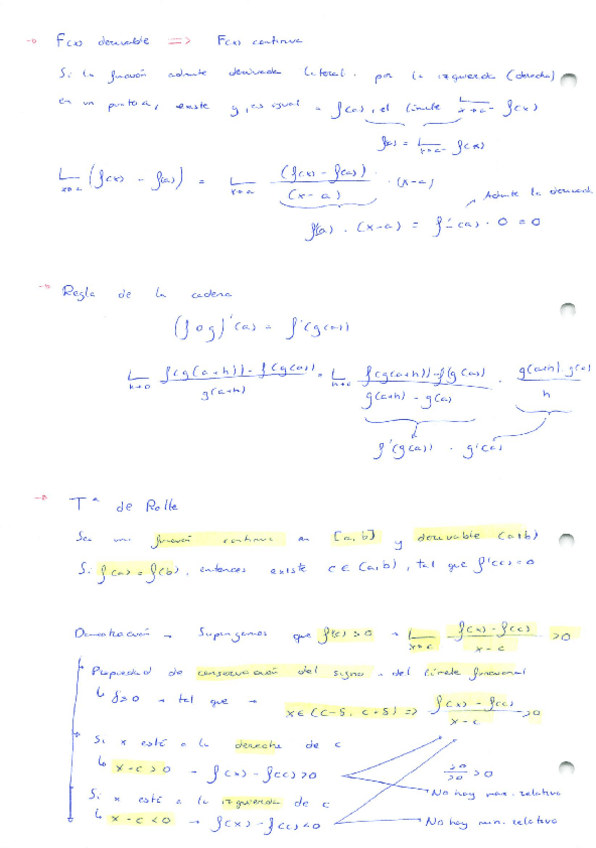 → F(x) derivable => F(x) continua
Si la función admite derivada lateral por la izquierda (derecha)
en un punto a, existe y, es igual a f(a), el límite L x→a- f(x)
f(a) = L x→a- f(x)
L x→a (f(x) - f(a)) = L x→a (f(x) - f(a)) / (x - a) · (x-a)
Admite la derivada
f'(a) · (x-a) = f'-(a) · 0 = 0
→ Regla de la cadena
(f o g)'(a) = f'(g(a))
L h→0 f(g(a+h)) - f(g(a)) / g(a+h) = L h→0 f(g(a+h)) - f(g(a)) / g(a+h) - g(a) · g(a+h) - g(a) / h
f'(g(a)) · g'(a)
→ Tª de Rolle
Sea una función continua en [a,b] y derivable (a,b)
Si f(a) = f(b), entonces existe c ∈ (a,b), tal que f'(c) = 0
Demostración → Supongamos que f(c) > 0 → L x→c f(x) - f(c) / x - c > 0
Propiedad de conservación del signo → del límite funcional
↳ δ>0 → tal que → x ∈ (c-δ, c+δ) => f(x) - f(c) / x - c > 0
Si x está a la derecha de c
↳ x - c > 0 → f(x) - f(c) > 0
>0 / >0 > 0
No hay max. relativo
Si x está a la izquierda de c
↳ x - c < 0 → f(x) - f(c) < 0
No hay min. relativo